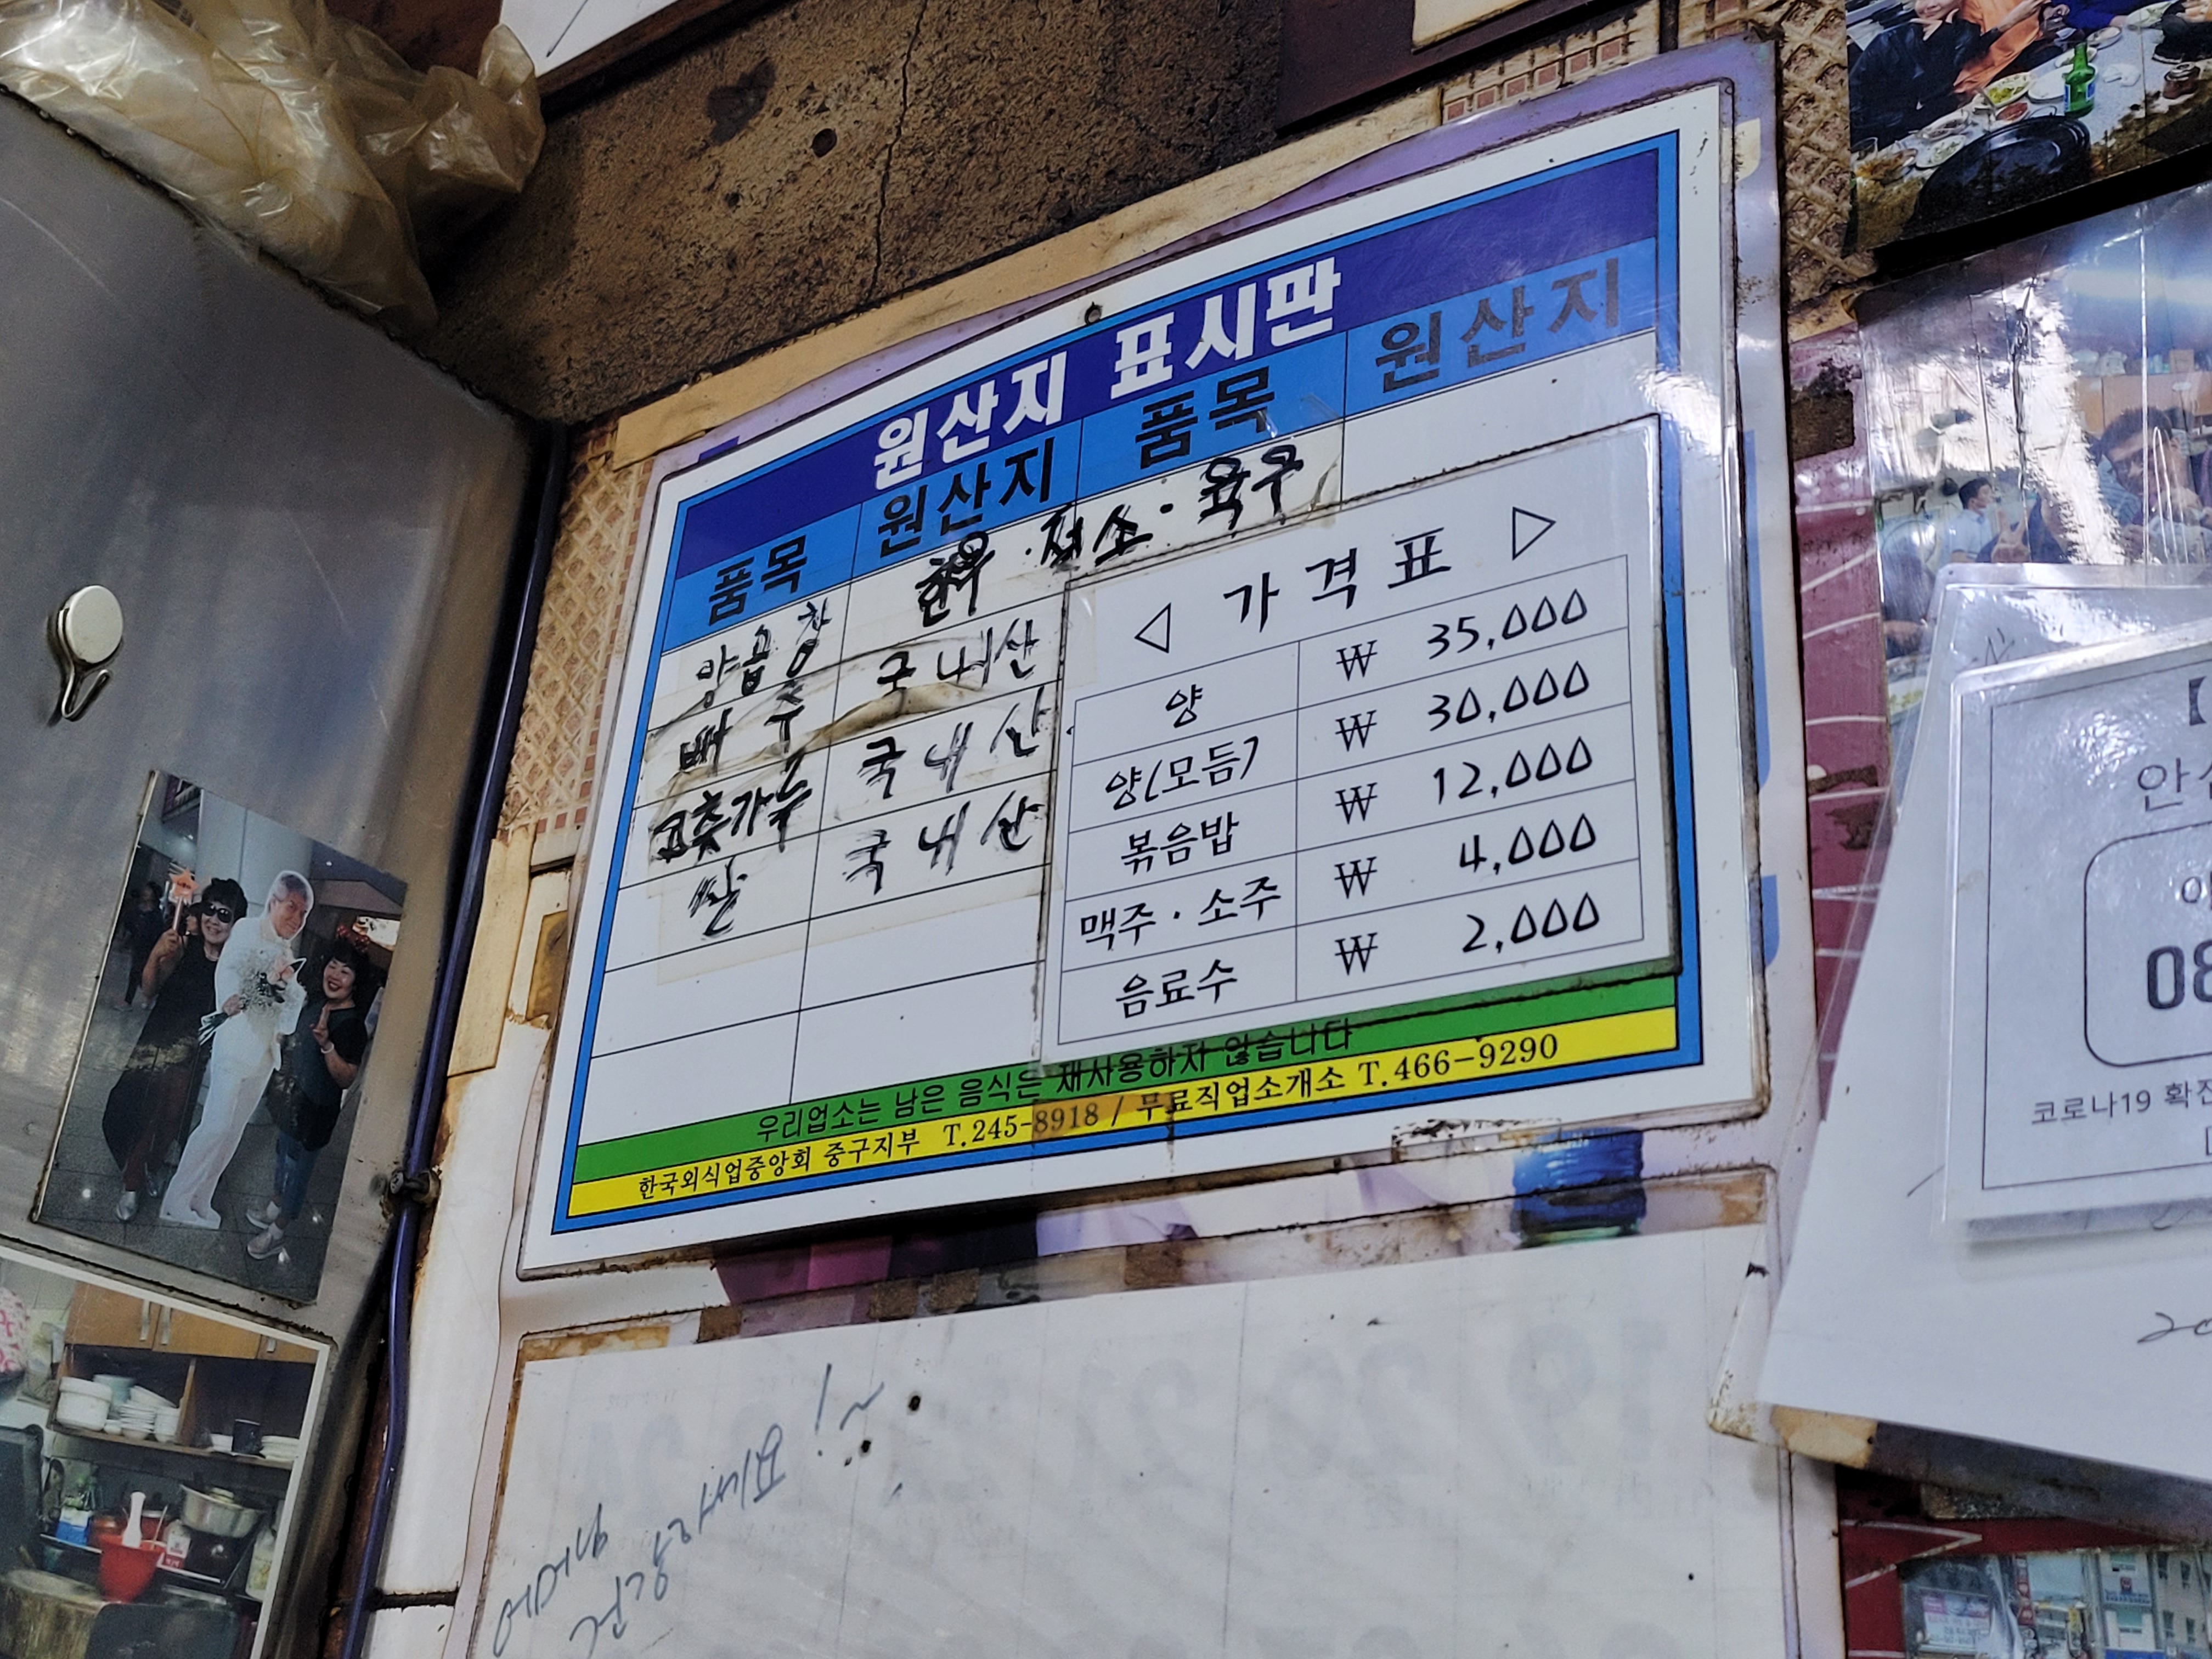 원산지 표시판
품목 원산지 품목 원산지
양곱창 한우·젖소·육우
배추 국내산
고춧가루 국내산
쌀 국내산
◁ 가격표 ▷
양 ₩ 35,000
양(모듬) ₩ 30,000
볶음밥 ₩ 12,000
맥주·소주 ₩ 4,000
음료수 ₩ 2,000
우리업소는 남은 음식은 재사용하지 않습니다
한국외식업중앙회 중구지부 T.245-8918 / 무료직업소개소 T.466-9290
어머님
건강하세요!~
안심
08
코로나19 확진